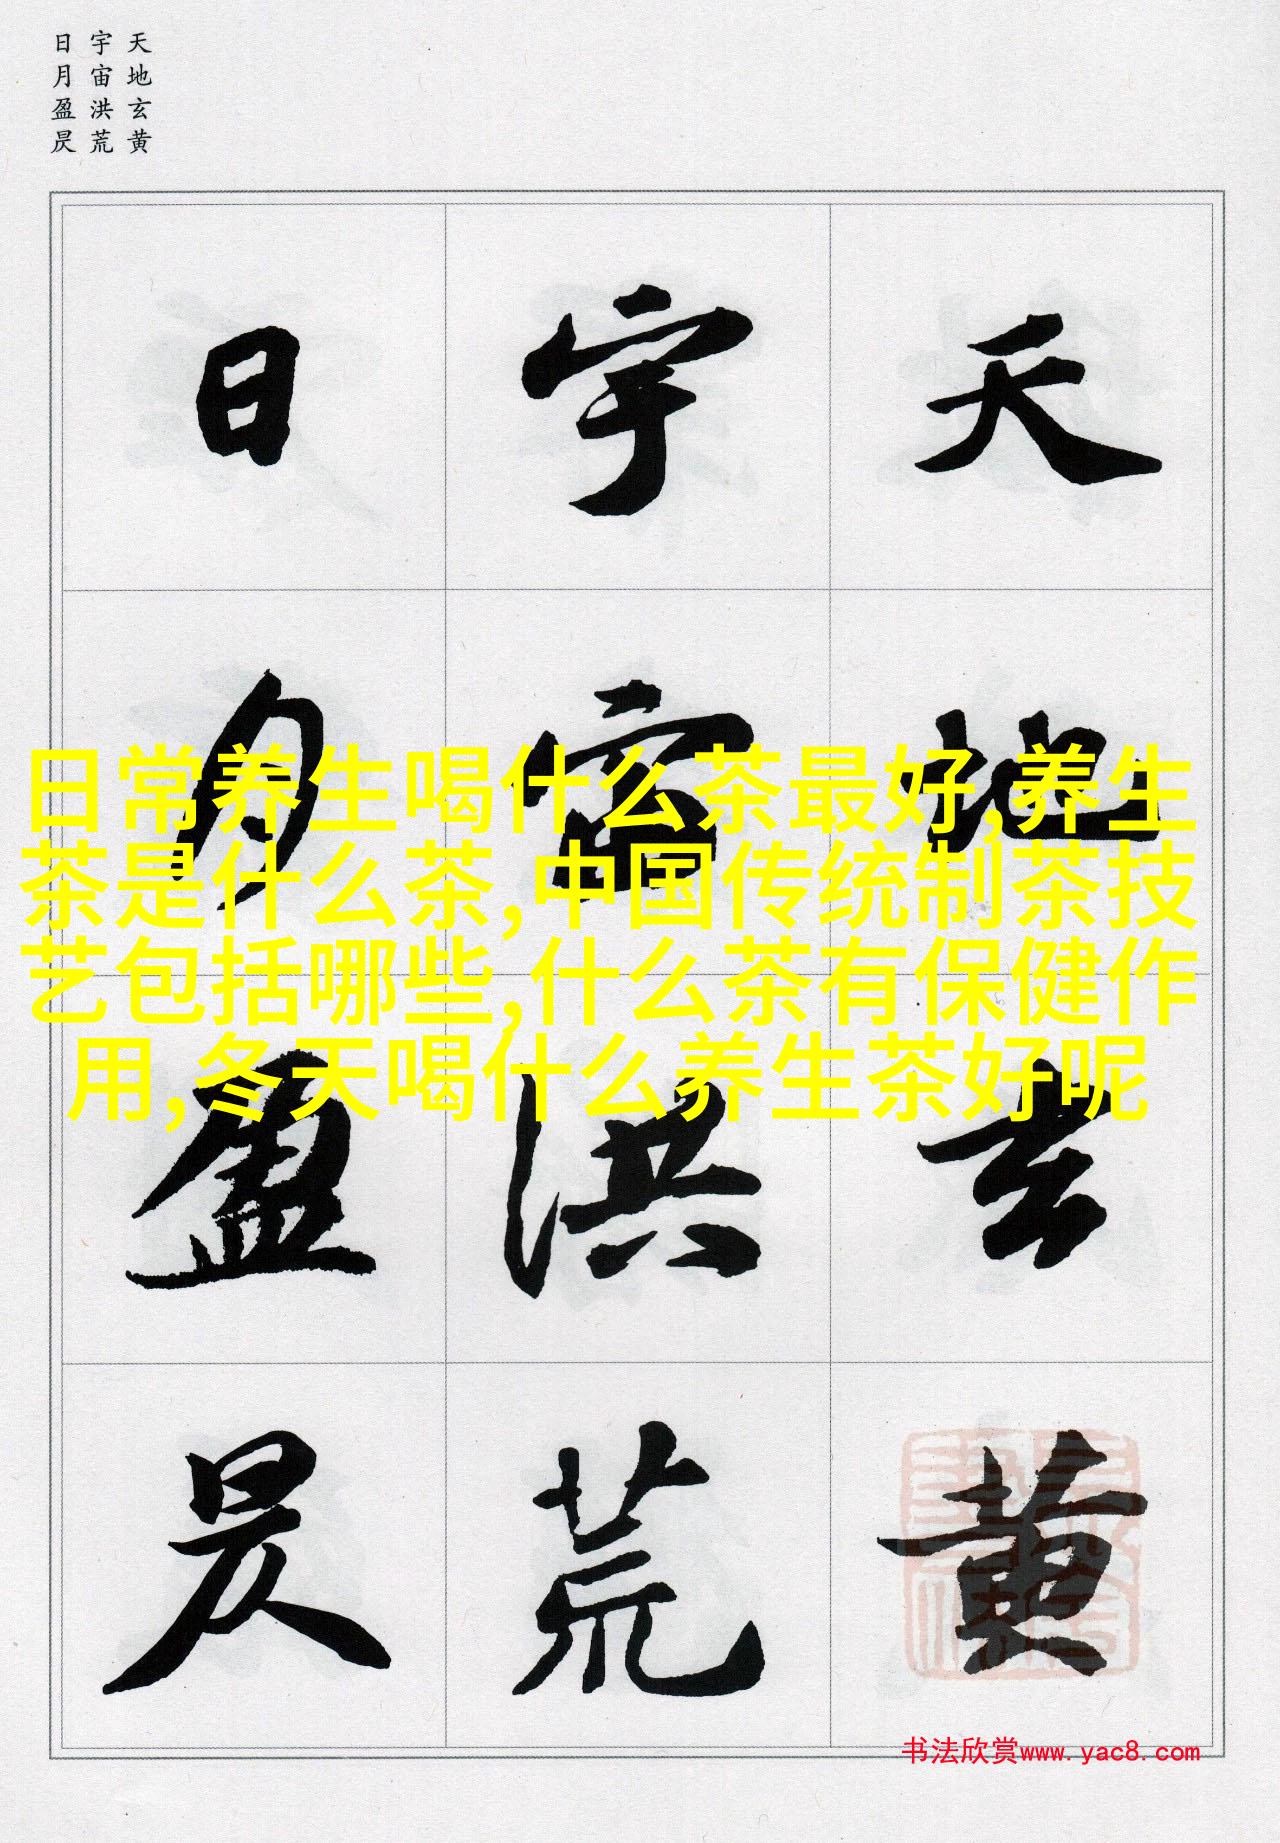 天地玄黄
宇宙洪荒
日月盈昃
天地玄黄
宇宙洪荒
日月盈昃
日常养生喝什么茶最好,养生
茶是什么茶,中国传统制茶技
艺包括哪些,什么茶有保健作
用,冬天喝什么养生茶好呢
书法欣赏www.yac8.com